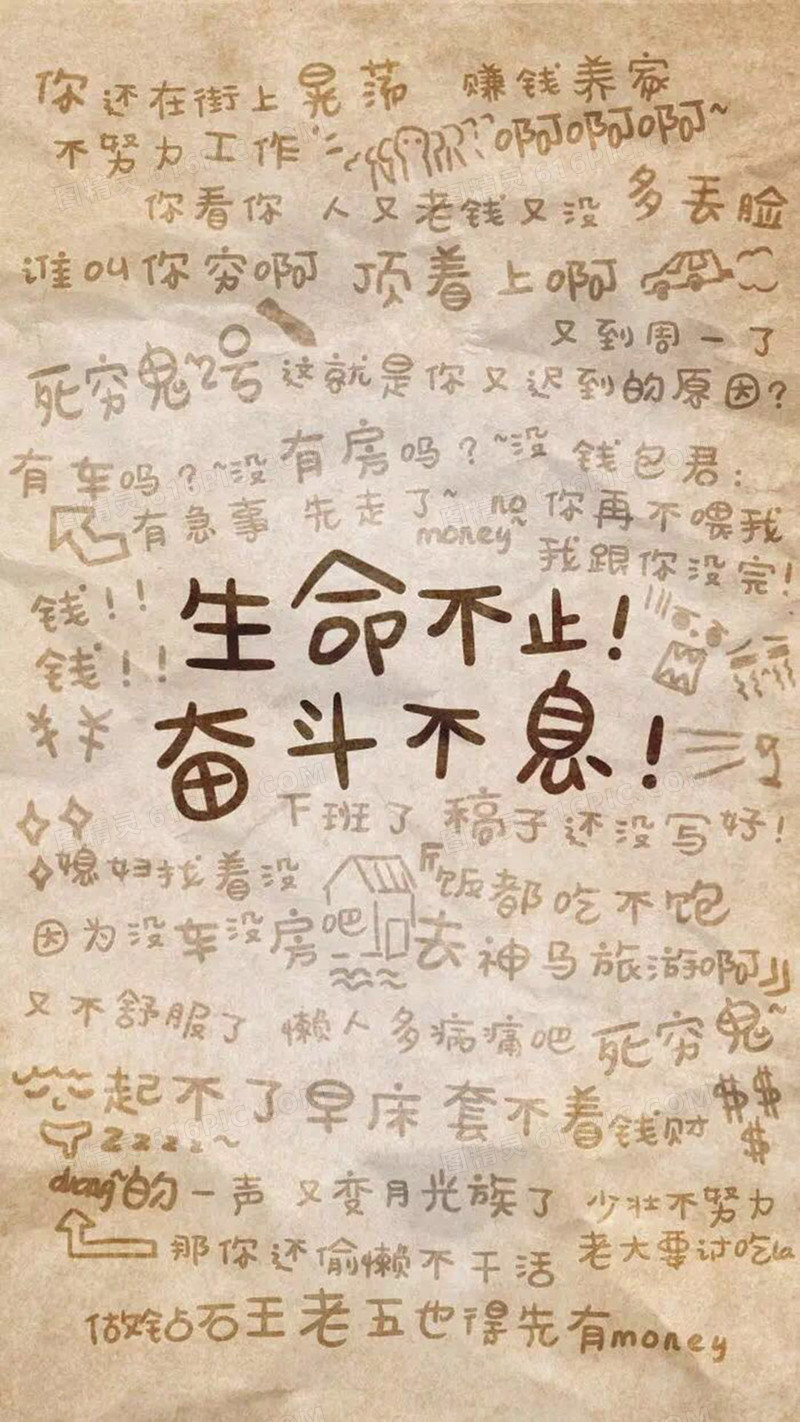 你还在街上晃荡 赚钱养家
不努力工作 啊啊啊~
你看你 人又老钱又没 多丢脸
谁叫你穷啊 顶着上啊
又到周一了
死穷鬼~2号 这就是你又迟到的原因?
有车吗?~没 有房吗?~没 钱包君:
有急事 先走了~ no money~ 你再不喂我
我跟你没完!
钱!!
生命不止!
钱!!
奋斗不息!
下班了 稿子还没写好!
媳妇找着没 饭都吃不饱
因为没车没房吧 去神马旅游啊
又不舒服了 懒人多病痛吧 死穷鬼~
起不了早床 套不着钱财 $$$
zzzzz~
duang~的一声 又变月光族了 少壮不努力
那你还偷懒不干活 老大要讨吃la
做钻石王老五也得先有money